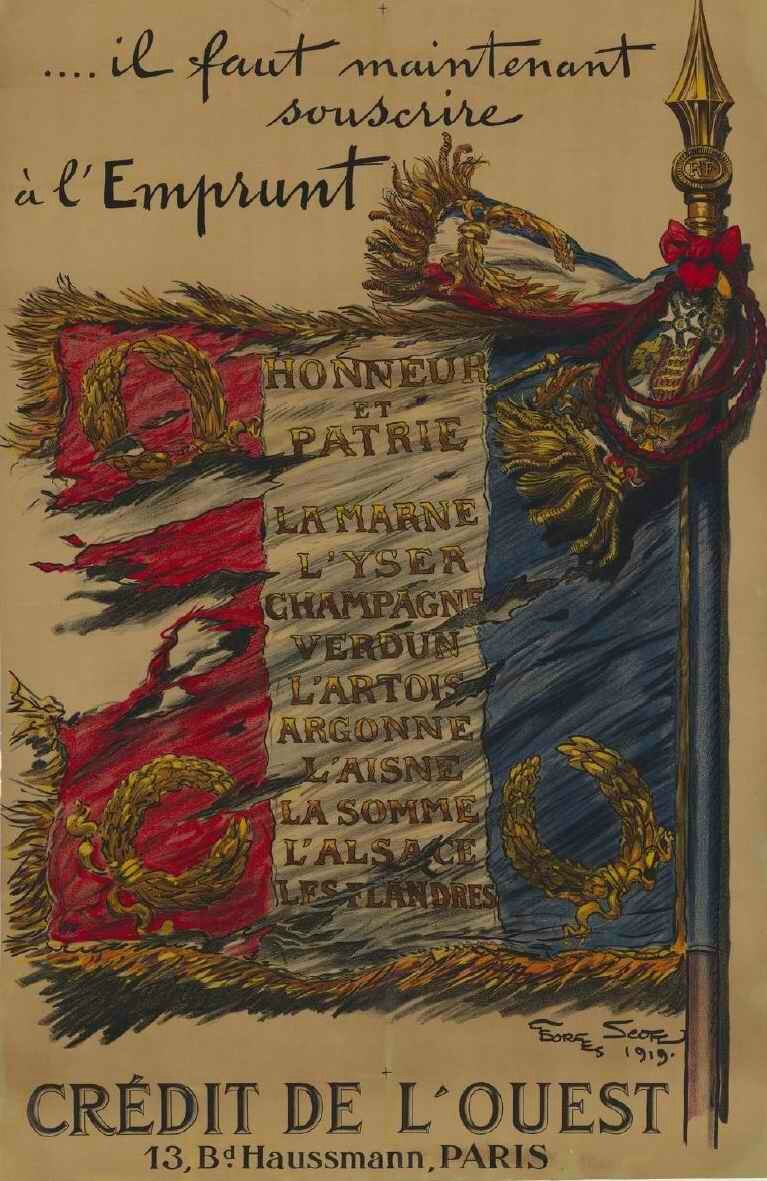 .... il faut maintenant
souscrire
à l'Emprunt
RF
HONNEUR
ET
PATRIE
LA MARNE
L'YSER
CHAMPAGNE
VERDUN
L'ARTOIS
ARGONNE
L'AISNE
LA SOMME
L'ALSACE
LES FLANDRES
GEORGES SCOTT
1919.
CRÉDIT DE L'OUEST
13, Bd Haussmann, PARIS